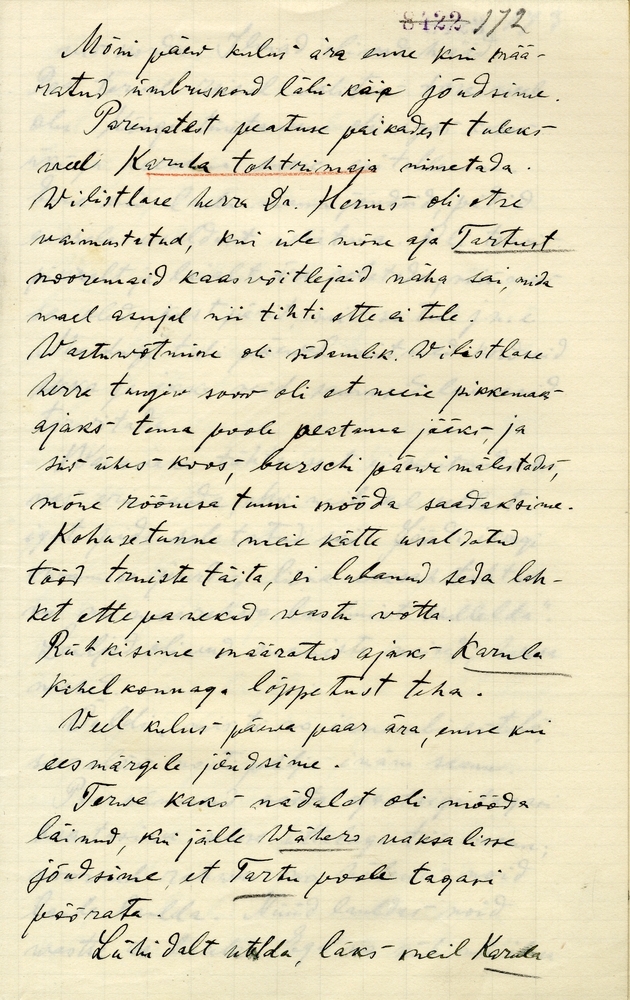 8422 172
Mõni päew kulus ära enne kui mää-
ratud ümbruskond läbi käia jõudsime.
Parematest peatuse paikadest tuleks
weel Karula tohtrimaja nimetada.
Wilistlase herra Dr. Herms oli otse
vaimustatud, kui üle mõne aja Tartust
nooremaid kaaswõitlejaid näha sai, mida
mael asujal nii tihti ette ei tule.
Wastuwõtmine oli südamlik. Wilistlase
herra tungiv soow oli et meie pikkemaks
ajaks tema poole peatama jääks, ja
siis ühes koos, burschi päewi mälestades,
mõne rõõmsa tunni mööda saadaksime.
Kohusetunne meie kätte usaldatud
tööd truiste täita, ei lubanud seda lah-
ket ettepanekud wastu võtta.
Rühkisime määratud ajaks Karula
kihelkonnaga lõppetust teha.
Weel kulus päewa paar ära, enne kui
eesmärgile jõudsime.
Terwe kaks nädalat oli mööda
läinud, kui jälle Wahero vaksalisse
jõudsime, et Tartu poole tagasi
pöörata.
Lühidalt ütelda, läks meil Karula